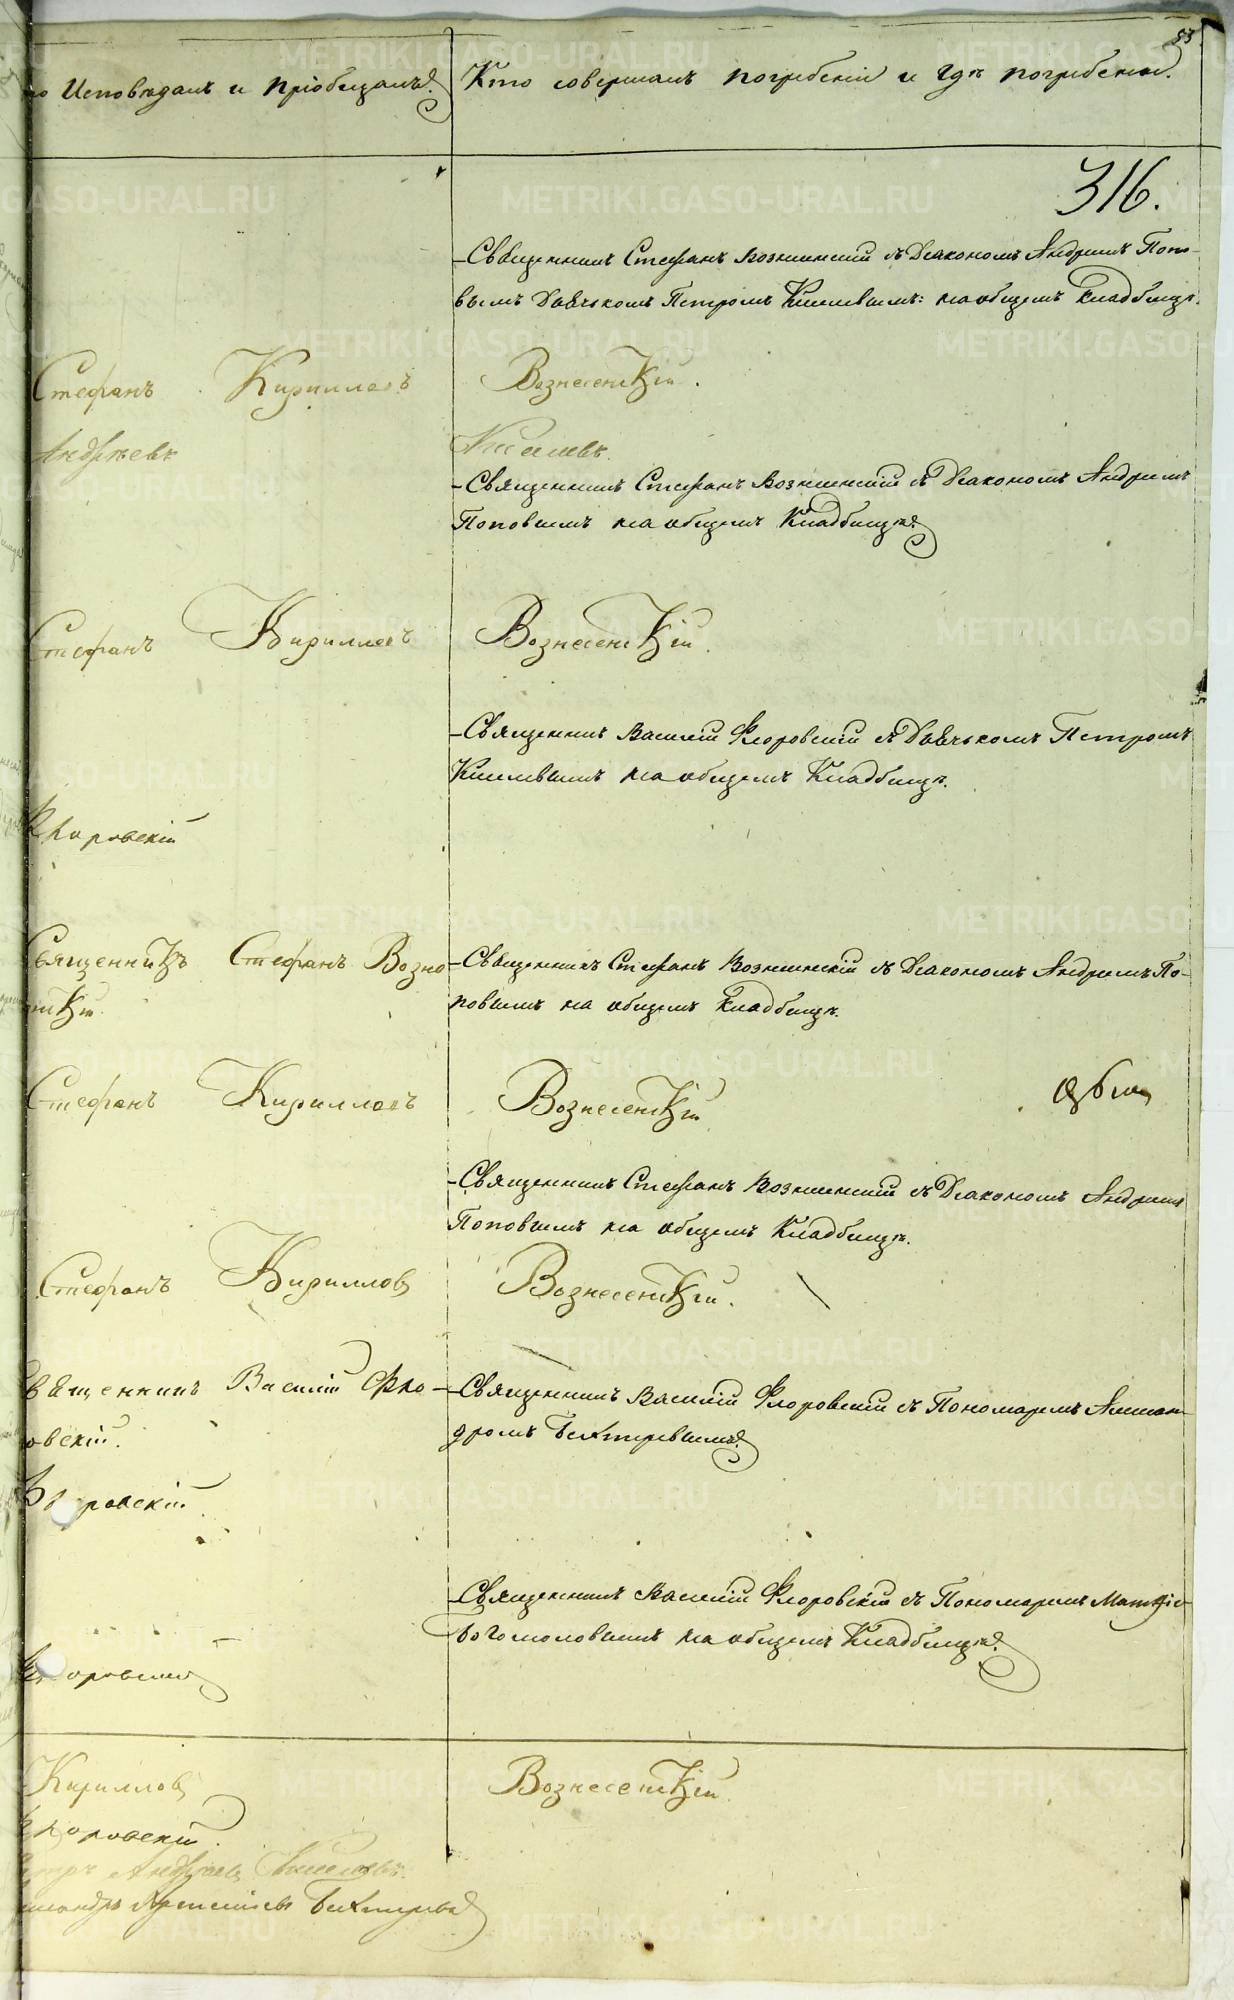 83
Исповѣдалъ и пріобщалъ.
Кто совершалъ погребеніе и гдѣ погребены.
316.
Священникъ Стефанъ Вознесенскій съ Діакономъ Андреемъ Попо-
вымъ Дьячькомъ Петромъ Киселевымъ: на общемъ кладбищѣ.
Стефанъ Кирилловъ Вознесенскій.
Андрѣевъ Киселевъ.
Священникъ Стефанъ Вознесенскій съ Діакономъ Андреемъ
Поповымъ на общемъ Кладбищѣ.
Стефанъ Кирилловъ Вознесенскій.
Священникъ Василій Флоровскій съ Дьячькомъ Петромъ
Киселевымъ на общемъ Кладбищѣ.
Флоровскій
Священникъ Стефанъ Возне-
сенскій.
Священникъ Стефанъ Вознесенскій съ Діакономъ Андреемъ По-
повымъ на общемъ кладбищѣ.
Стефанъ Кирилловъ Вознесенскій
Священникъ Стефанъ Вознесенскій съ Діакономъ Андреемъ
Поповымъ на общемъ Кладбищѣ.
Стефанъ Кирилловъ Вознесенскій.
Священникъ Василій Фло-
ровскій.
Священникъ Василій Флоровскій съ Пономаремъ Алексан-
дромъ Бехтеревымъ.
Флоровскій.
Священникъ Василій Флоровскій съ Пономаремъ Матѳіе
Богомоловымъ на общемъ Кладбищѣ.
Флоровскій
Кирилловъ Вознесенскій.
Флоровскій.
Петръ Андрѣевъ Киселевъ.
Александръ Бехтеревъ
METRIKI.GASO-URAL.RU